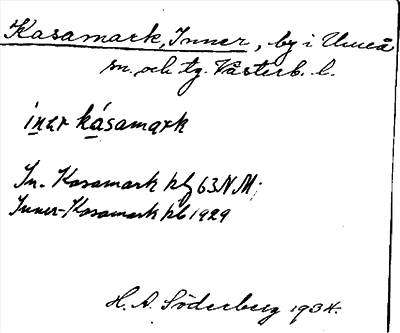 Kasamark, Inner, by i Umeå
sn. och tg. Västerb. l.
inər kásamark
In. Kasamark hfl 63NM;
Inner-Kasamark hb 1929
H. A. Söderberg 1934.